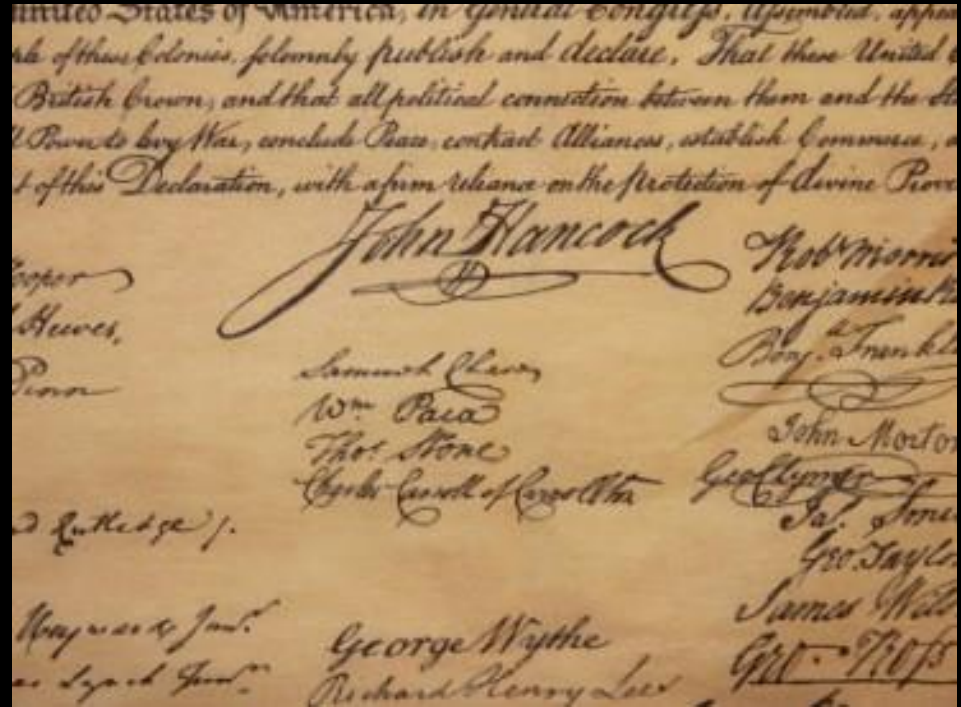 United States of America, in General Congress, Assembled, appea
ple of these Colonies, solemnly publish and declare, That these United
British Crown, and that all political connection between them and the Sta
l Power to levy War, conclude Peace, contract Alliances, establish Commerce, a
t of this Declaration, with a firm reliance on the protection of divine Prove
John Hancock
ooper
Hewes,
Penn
d Rutledge /.
Heyward Junr.
as Lynch Junr.
Samuel Chase
Wm. Paca
Thos. Stone
Charles Carroll of Carrollton
George Wythe
Richard Henry Lee
Robt Morris
Benjamin Ru
Benj. Frankli
John Morton
Geo Clymer
Jas. Smi
Geo. Taylo
James Wils
Geo. Ross